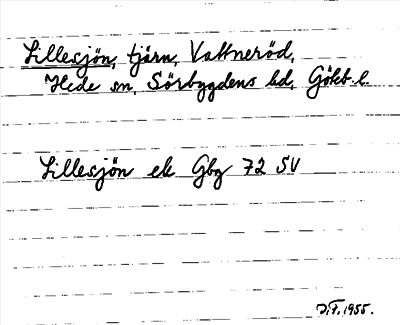 Lillesjön, tjärn, Vattneröd,
Hede sn, Sörbygdens hd, Göteb. l.
Lillesjön ek Gbg 72 SV
D.F. 1955.